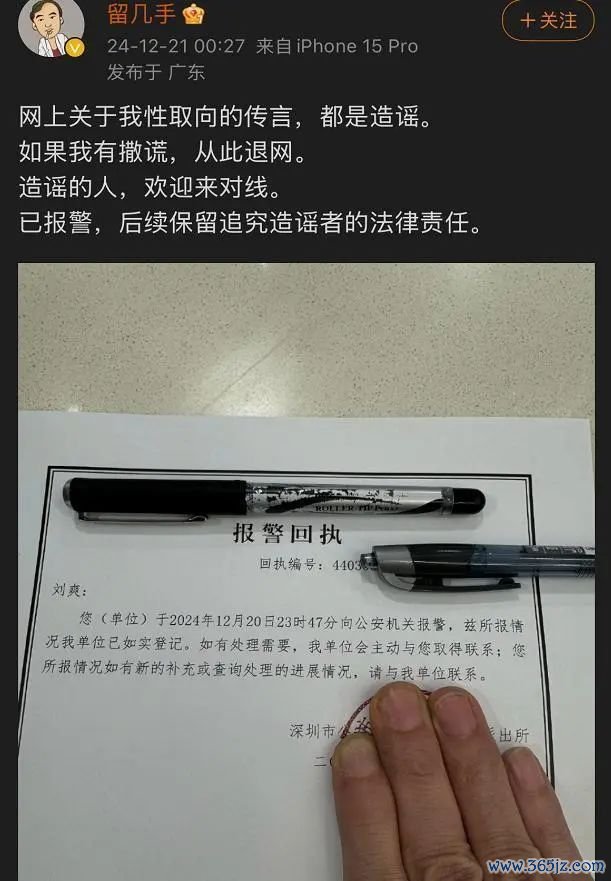 留几手
+关注
24-12-21 00:27 来自 iPhone 15 Pro
发布于 广东
网上关于我性取向的传言，都是造谣。
如果我有撒谎，从此退网。
造谣的人，欢迎来对线。
已报警，后续保留追究造谣者的法律责任。
ROLLER-TIP
报警回执
回执编号：4403
刘爽：
您（单位）于2024年12月20日23时47分向公安机关报警，兹所报情
况我单位已如实登记。如有处理需要，我单位会主动与您取得联系；您
所报情况如有新的补充或查询处理的进展情况，请与我单位联系。
深圳市公 派出所
二〇
www.365jz.com